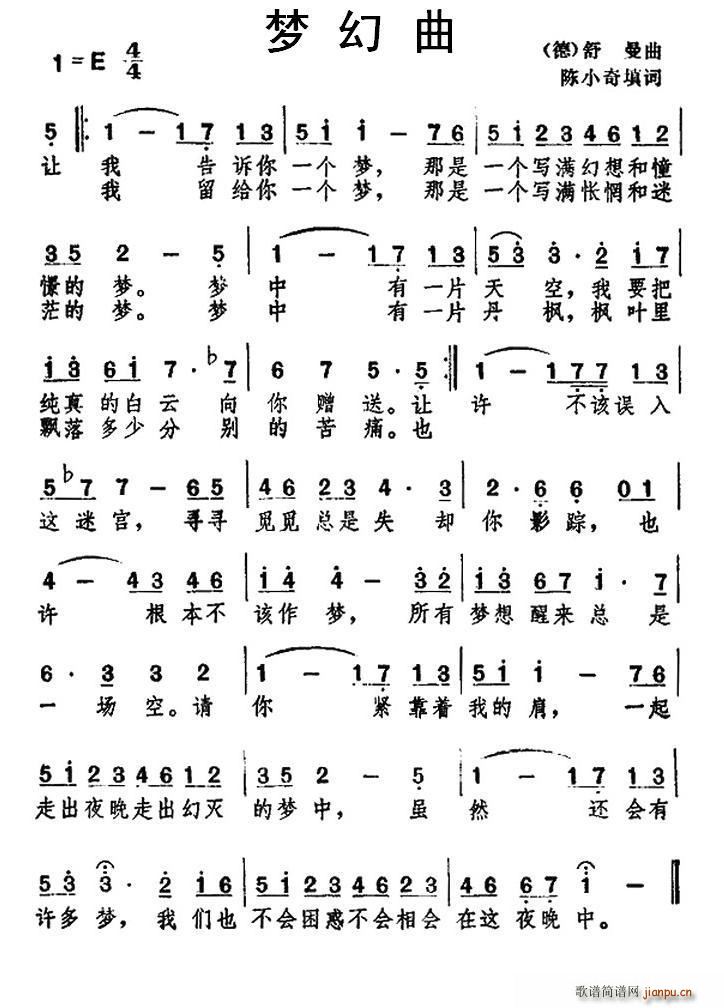 梦幻曲
1=E 4/4
（德）舒 曼曲
陈小奇填词
5 1 — 1 7 1 3 5 1 1 — 7 6 5 1 2 3 4 6 1 2
让 我 告诉你 一个梦， 那是 一个写满幻想和憧
我 留给你 一个梦， 那是 一个写满怅惘和迷
3 5 2 — 5 1 — 1 7 1 3 5 3 3 · 2 1 7
憬的梦。 梦 中 有一片 天 空，我要把
茫的梦。 梦 中 有一片 丹 枫，枫叶里
1 3 6 1 7 · ♭7 6 7 5 · 5 1 — 1 7 7 1 3
纯真的白云 向 你 赠 送。让 许 不该误入
飘落多少分 别 的 苦 痛。也
5 ♭7 7 — 6 5 4 6 2 3 4 · 3 2 · 6 6 0 1
这迷宫， 寻寻 觅觅总是失 却 你 影 踪， 也
4 — 4 3 4 6 1 4 4 — 3 2 1 3 6 7 1 · 7
许 根本不 该作 梦， 所有 梦想醒来总 是
6 · 3 3 2 1 — 1 7 1 3 5 1 1 — 7 6
一 场 空。请 你 紧靠着 我的肩， 一起
5 1 2 3 4 6 1 2 3 5 2 — 5 1 — 1 7 1 3
走出夜晚走出幻灭 的梦中， 虽 然 还会有
5 3 3 · 2 1 6 5 1 2 3 4 6 3 2 4 6 6 7 1 —
许多梦， 我们也 不会困惑不会相会 在这夜晚中。
歌谱简谱网
jianpu.cn